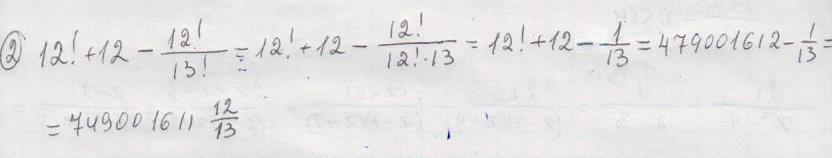 ② 12! + 12 - 12!/13! = 12! + 12 - 12!/(12!·13) = 12! + 12 - 1/13 = 479001612 - 1/13 =
= 749001611 12/13